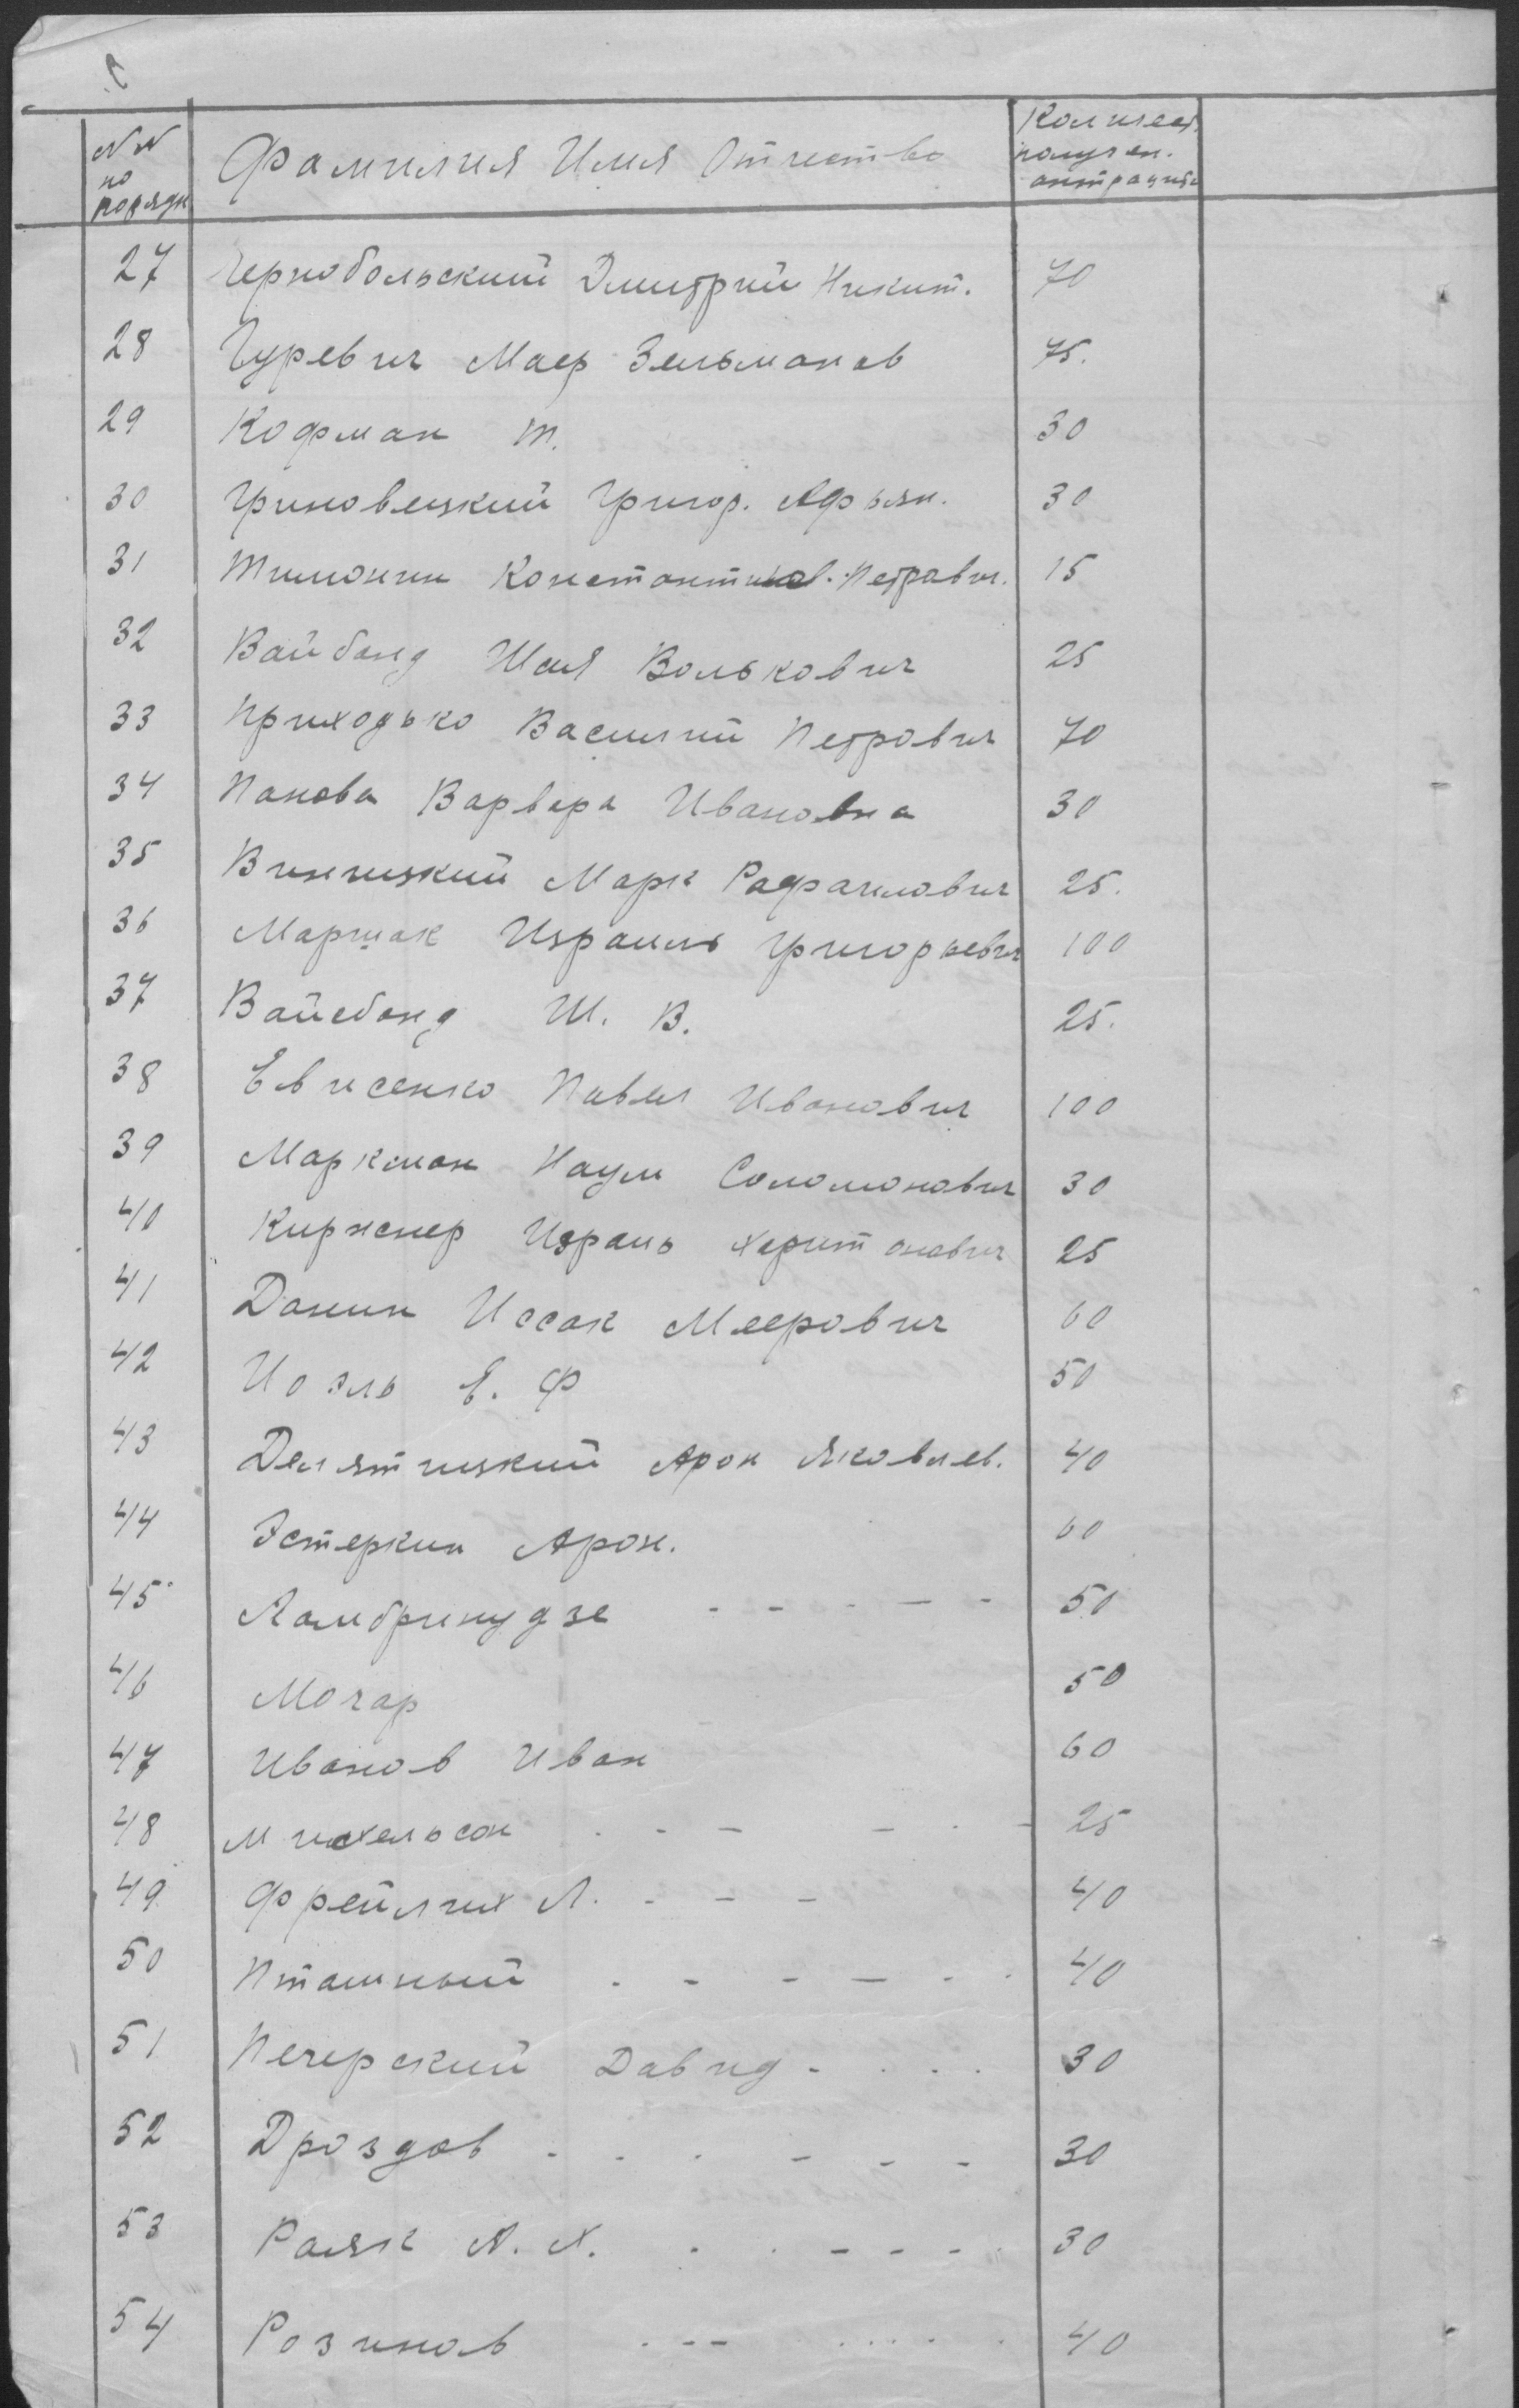 №№ по порядк Фамилия Имя Отчество Количест. получен. антрацита
27 Чернобольский Дмитрий Никит. 70
28 Гуревич Маер Зельманов 75.
29 Кофман М. 30
30 Гриновецкий Григор. Афрян. 30
31 Тимонин Константинов. Петрович. 15
32 Вайбанд Шая Волькович 25
33 Приходько Василий Петрович 70
34 Панова Варвара Ивановна 30
35 Виницкий Марк Рафаилович 25.
36 Маршак Израиль Григорьевич 100
37 Вайсбанд Ш. В. 25.
38 Евисенко Павел Иванович 100
39 Маркман Наум Соломонович 30
40 Киржнер Израиль Харитонович 25
41 Данин Иссак Меерович 60
42 Иоэль Е. Ф 50
43 Делятицкий Арон Яковлев. 40
44 Эстеркин Арон. 60
45 Ламбринудзе 50
46 Мочар 50
47 Иванов Иван 60
48 Михельсон 25
49 Фрейлих Л. 40
50 Пташный 40
51 Печерский Давид 30
52 Дроздов 30
53 Раяк А. Х. 30
54 Розинов 40